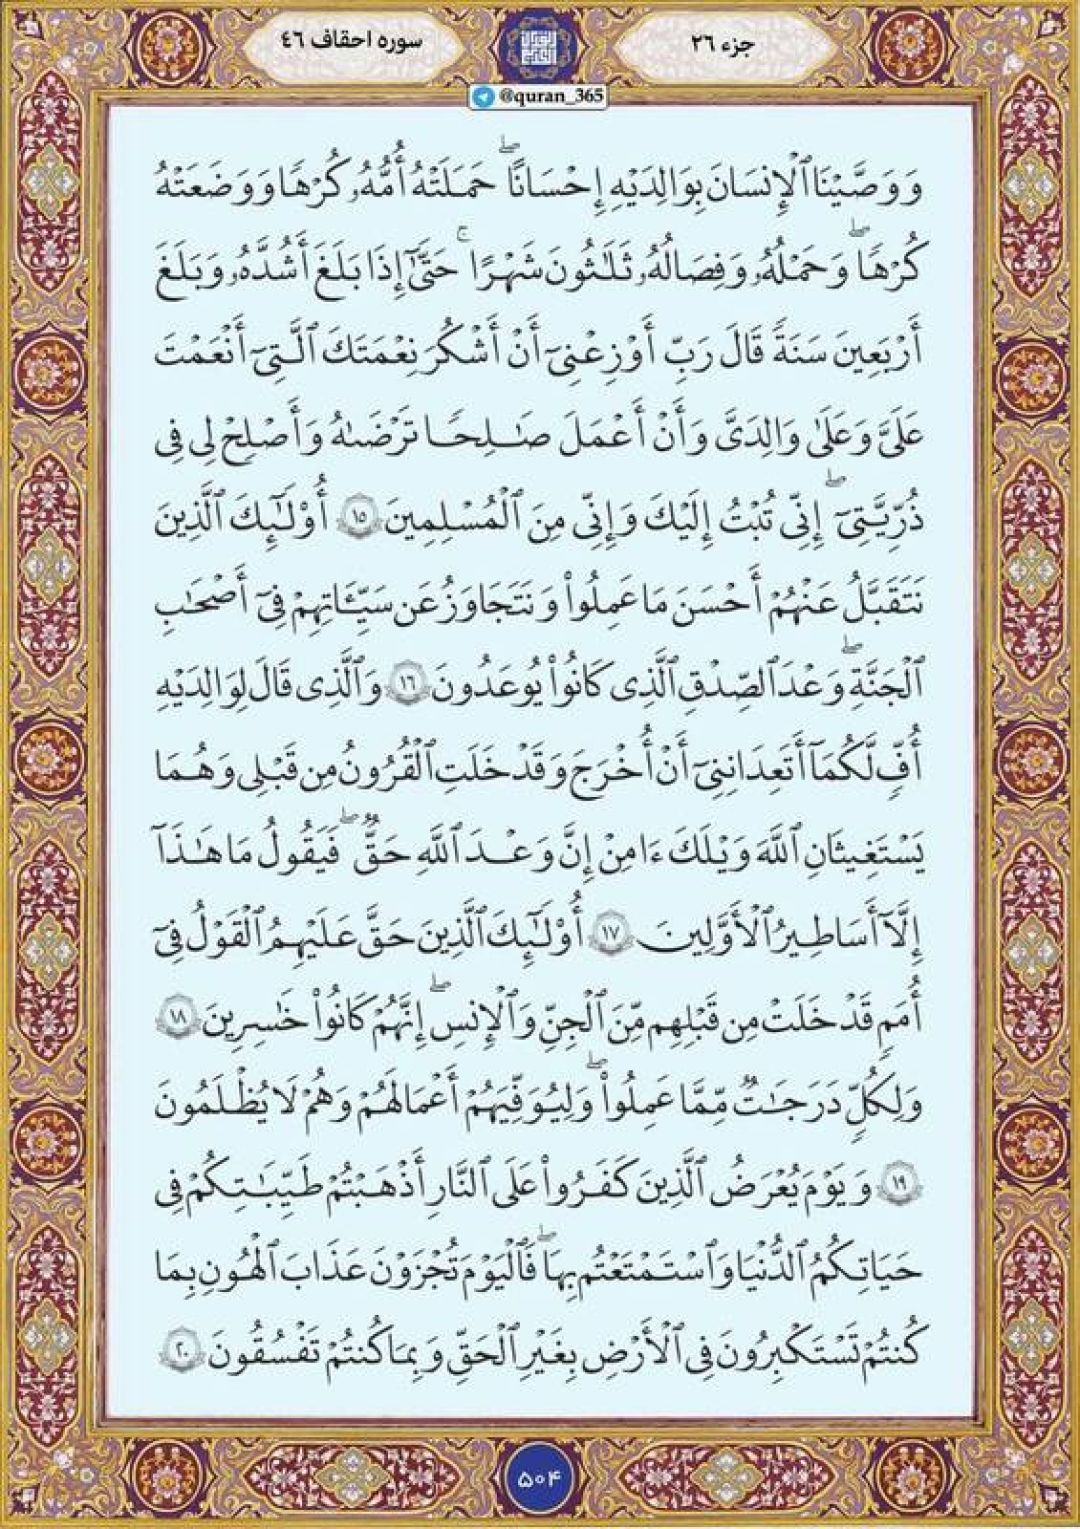 جزء ۲۶
سوره احقاف ٤٦
@quran_365
وَوَصَّيْنَا ٱلْإِنسَانَ بِوَالِدَيْهِ إِحْسَانًا ۖ حَمَلَتْهُ أُمُّهُۥ كُرْهًا وَوَضَعَتْهُ
كُرْهًا ۖ وَحَمْلُهُۥ وَفِصَالُهُۥ ثَلَاثُونَ شَهْرًا ۚ حَتَّىٰٓ إِذَا بَلَغَ أَشُدَّهُۥ وَبَلَغَ
أَرْبَعِينَ سَنَةً قَالَ رَبِّ أَوْزِعْنِىٓ أَنْ أَشْكُرَ نِعْمَتَكَ ٱلَّتِىٓ أَنْعَمْتَ
عَلَىَّ وَعَلَىٰ وَالِدَىَّ وَأَنْ أَعْمَلَ صَـٰلِحًا تَرْضَىٰهُ وَأَصْلِحْ لِى فِى
ذُرِّيَّتِىٓ ۖ إِنِّى تُبْتُ إِلَيْكَ وَإِنِّى مِنَ ٱلْمُسْلِمِينَ ١٥ أُوْلَـٰٓئِكَ ٱلَّذِينَ
نَتَقَبَّلُ عَنْهُمْ أَحْسَنَ مَا عَمِلُواْ وَنَتَجَاوَزُ عَن سَيِّـَٔاتِهِمْ فِىٓ أَصْحَـٰبِ
ٱلْجَنَّةِ ۖ وَعْدَ ٱلصِّدْقِ ٱلَّذِى كَانُواْ يُوعَدُونَ ١٦ وَٱلَّذِى قَالَ لِوَالِدَيْهِ
أُفٍّ لَّكُمَآ أَتَعِدَانِنِىٓ أَنْ أُخْرَجَ وَقَدْ خَلَتِ ٱلْقُرُونُ مِن قَبْلِى وَهُمَا
يَسْتَغِيثَانِ ٱللَّهَ وَيْلَكَ ءَامِنْ إِنَّ وَعْدَ ٱللَّهِ حَقٌّ ۖ فَيَقُولُ مَا هَـٰذَآ
إِلَّآ أَسَاطِيرُ ٱلْأَوَّلِينَ ١٧ أُوْلَـٰٓئِكَ ٱلَّذِينَ حَقَّ عَلَيْهِمُ ٱلْقَوْلُ فِىٓ
أُمَمٍ قَدْ خَلَتْ مِن قَبْلِهِم مِّنَ ٱلْجِنِّ وَٱلْإِنسِ ۖ إِنَّهُمْ كَانُواْ خَـٰسِرِينَ ١٨
وَلِكُلٍّ دَرَجَـٰتٌ مِّمَّا عَمِلُواْ ۖ وَلِيُوَفِّيَهُمْ أَعْمَالَهُمْ وَهُمْ لَا يُظْلَمُونَ
١٩ وَيَوْمَ يُعْرَضُ ٱلَّذِينَ كَفَرُواْ عَلَى ٱلنَّارِ أَذْهَبْتُمْ طَيِّبَـٰتِكُمْ فِى
حَيَاتِكُمُ ٱلدُّنْيَا وَٱسْتَمْتَعْتُم بِهَا ۖ فَٱلْيَوْمَ تُجْزَوْنَ عَذَابَ ٱلْهُونِ بِمَا
كُنتُمْ تَسْتَكْبِرُونَ فِى ٱلْأَرْضِ بِغَيْرِ ٱلْحَقِّ وَبِمَا كُنتُمْ تَفْسُقُونَ ٢٠
۵۰۴